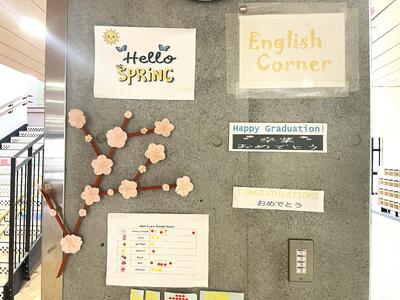 Hello
SPRING
English
Corner
Happy Graduation!
卒業
おめでとう
CONGRATULATIONS
おめでとう